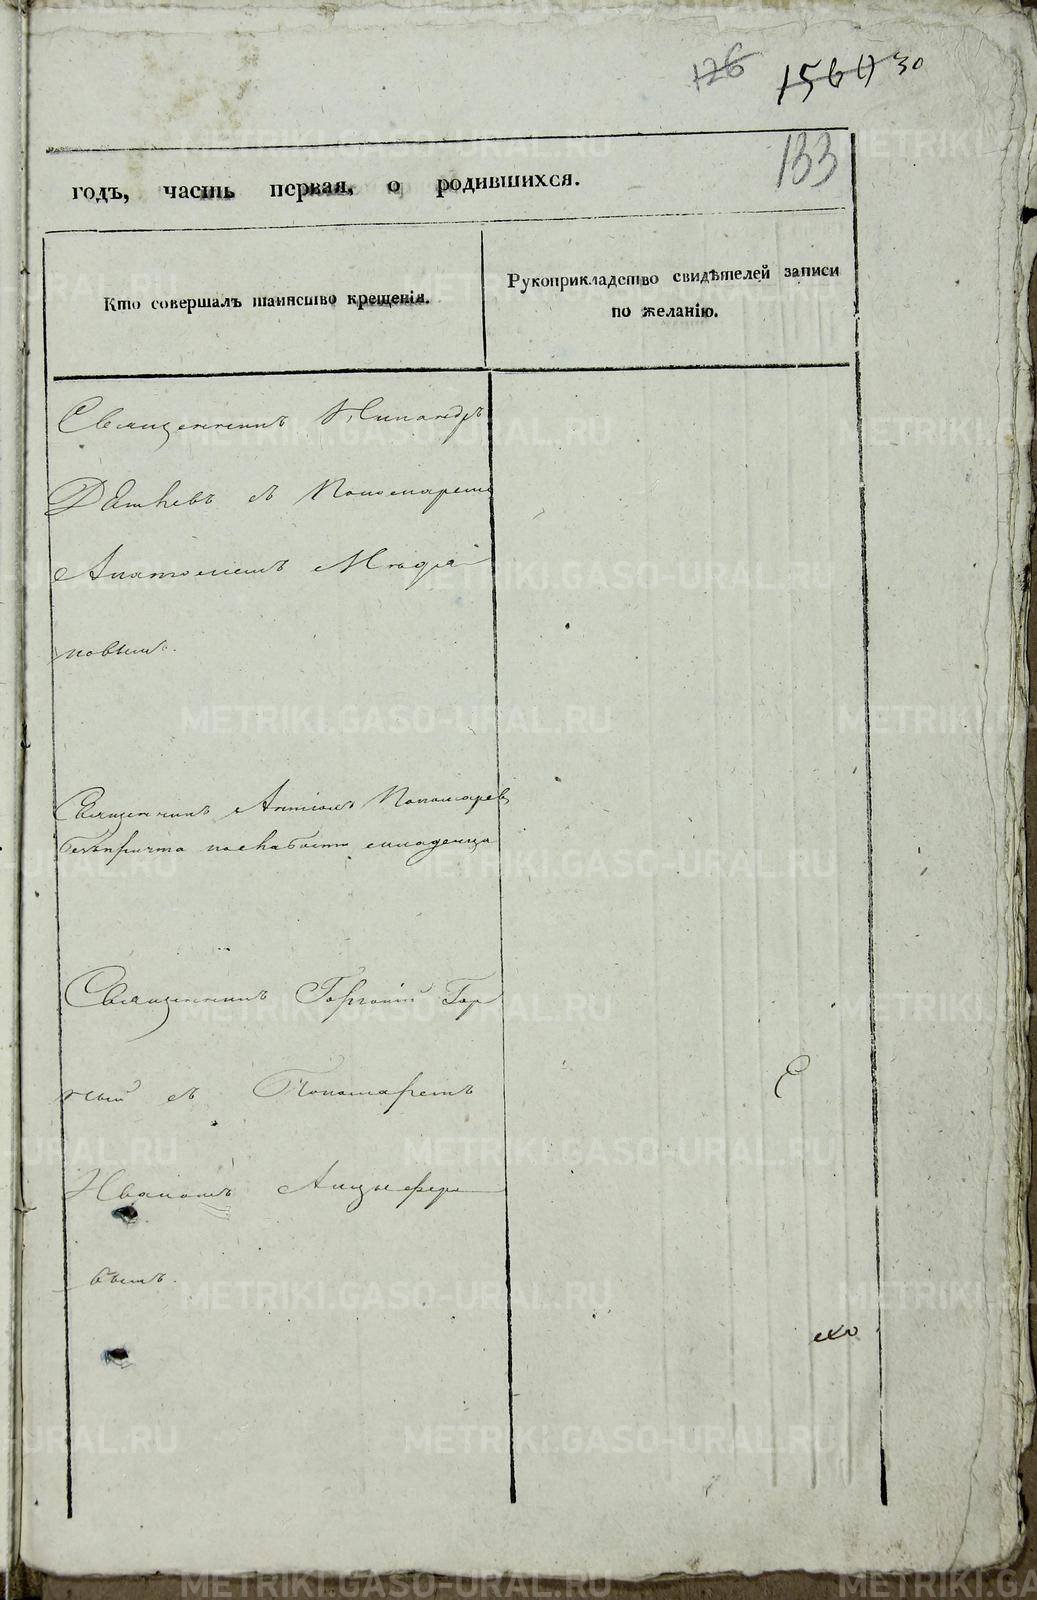 126 156 30
133
годъ, часть первая, о родившихся.
Кто совершалъ таинство крещенія.
Рукоприкладство свидѣтелей записи
по желанію.
Священникъ
съ Пономаремъ
новымъ.
Священникъ Антоній Пономаревъ
безъ причта по слабости младенца
Священникъ Горгоній Гор
ный съ Пономаремъ
Иваномъ Анцыферо
вымъ.
METRIKI.GASO-URAL.RU